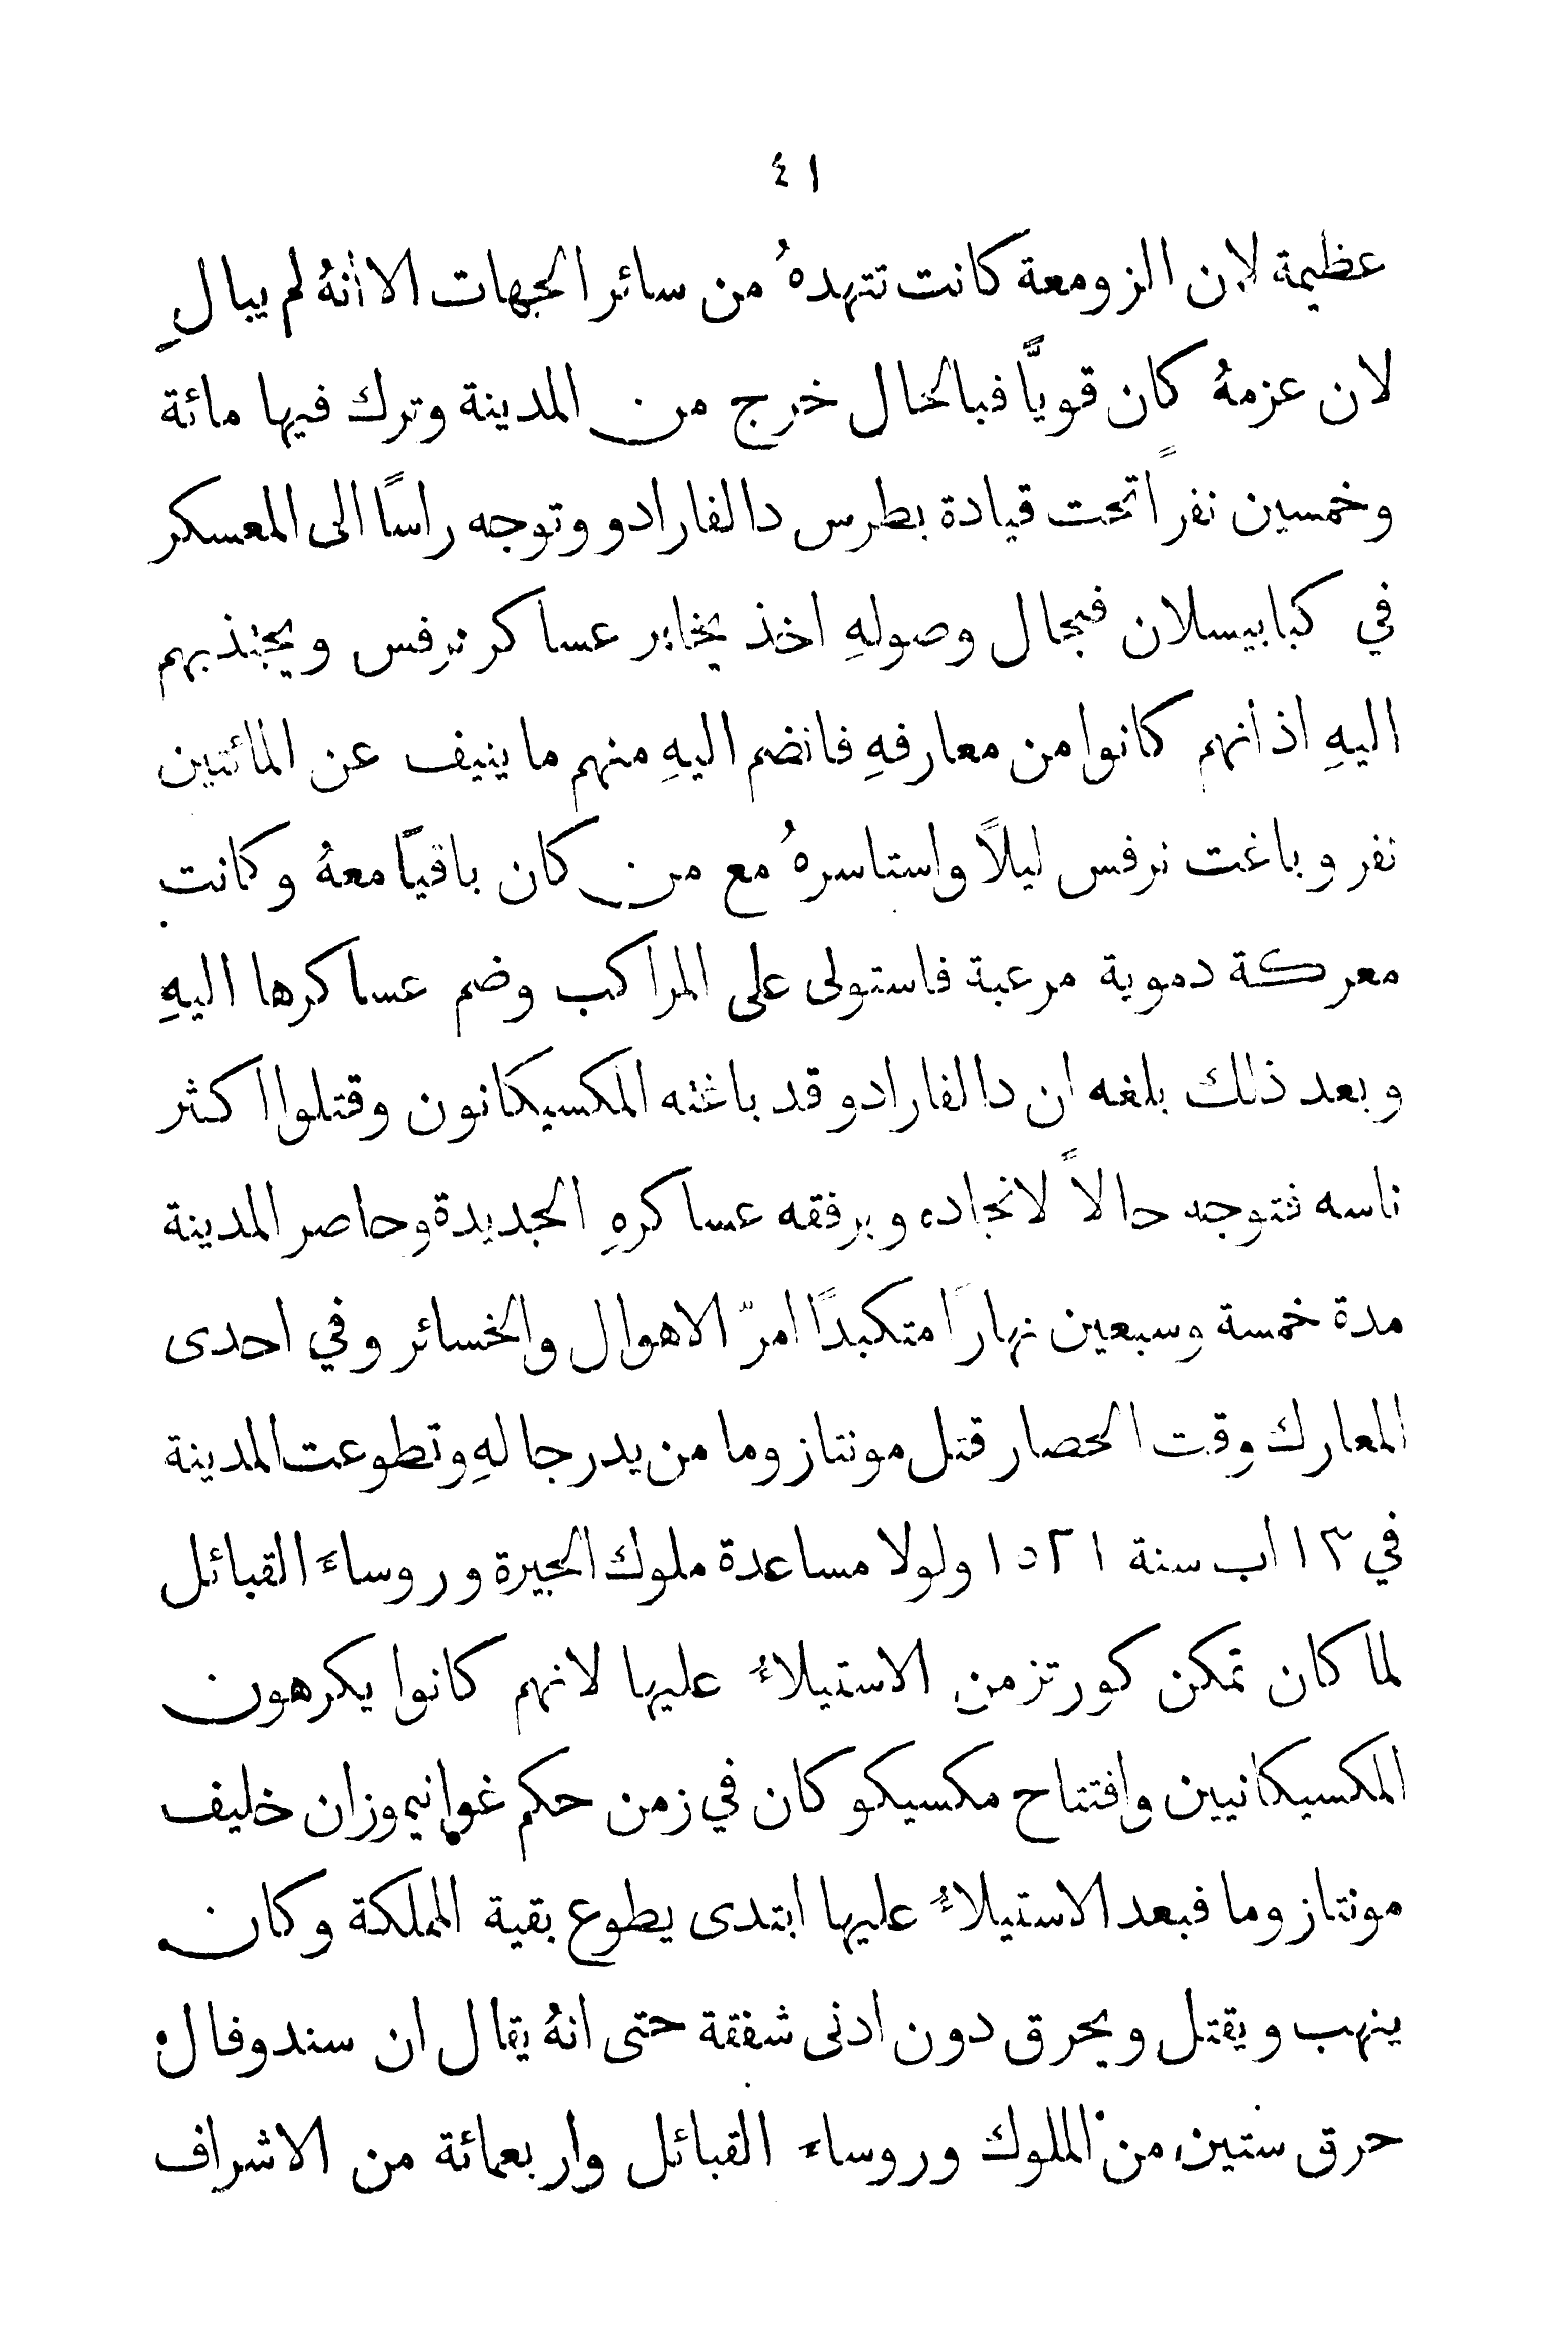 ٤١
عظيمة لان الزومعة كانت تتهدهُ من سائر الجهات الا انهُ لم يبالِ
لان عزمهُ كان قويًّا فبالحال خرج من المدينة وترك فيها مائة
وخمسين نفراً تحت قيادة بطرس دالفارادو وتوجه راسًا الى المعسكر
في كبابيسلان فبحال وصولهِ اخذ يخابر عساكر نرفس ويجتذبهم
اليهِ اذ انهم كانوا من معارفهِ فانضم اليهِ منهم ما ينيف عن المائتين
نفر وباغت نرفس ليلاً واستاسرهُ مع من كان باقيًا معهُ وكانت
معركة دموية مرعبة فاستولى على المراكب وضم عساكرها اليهِ
وبعد ذلك بلغه ان دالفارادو قد باغته المكسيكانون وقتلوا اكثر
ناسه فتوجه حالاً لانجاده وبرفقه عساكرهِ الجديدة وحاصر المدينة
مدة خمسة وسبعين نهاراً متكبدًا امرّ الاهوال والخسائر وفي احدى
المعارك وقت الحصار قتل مونتازوما من يد رجالهِ وتطوعت المدينة
في ١٣ اب سنة ١٥٢١ ولولا مساعدة ملوك الجيرة وروساءَ القبائل
لما كان تمكن كورتز من الاستيلاءُ عليها لانهم كانوا يكرهون
المكسيكانيين وافتتاح مكسيكو كان في زمن حكم غوانيموزان خليف
مونتازوما فبعد الاستيلاءُ عليها ابتدى يطوع بقية المملكة وكان
ينهب ويقتل ويحرق دون ادنى شفقة حتى انهُ يقال ان سندوفال
حرق ستين من الملوك وروساءَ القبائل واربعمائة من الاشراف